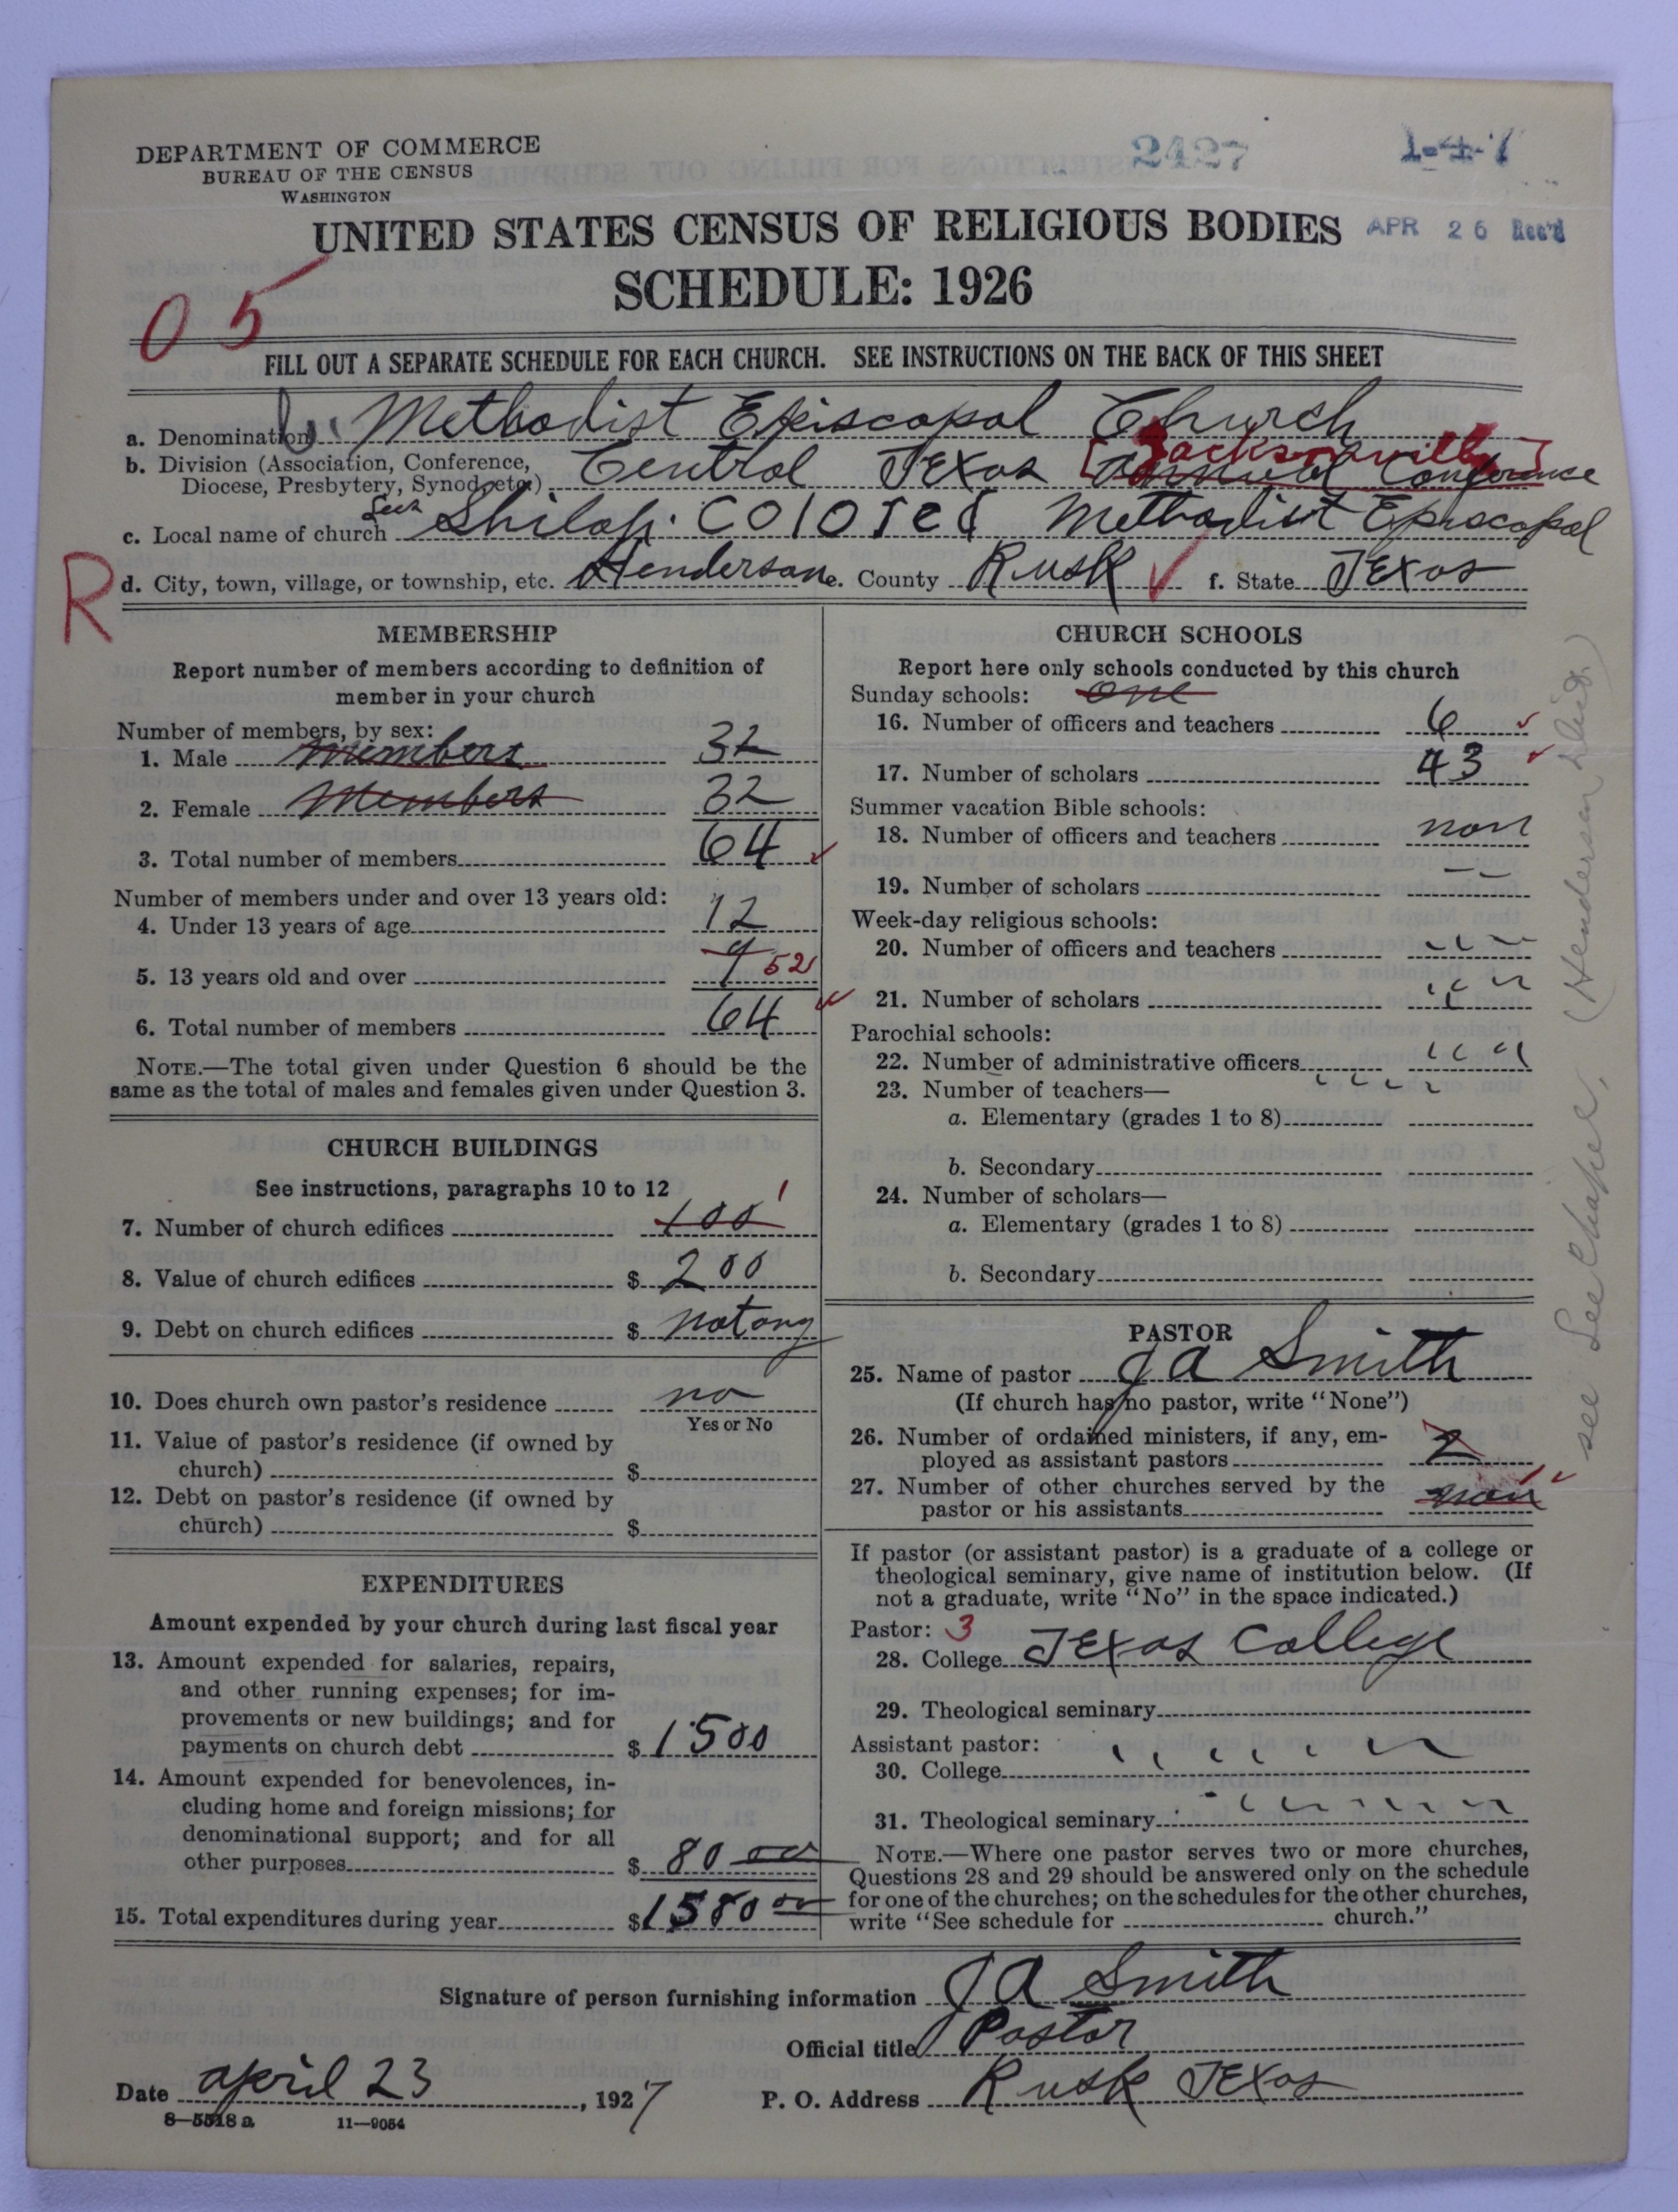 DEPARTMENT OF COMMERCE
BUREAU OF THE CENSUS
WASHINGTON
2427
1-4-7
UNITED STATES CENSUS OF RELIGIOUS BODIES
APR 26 Rec'd
SCHEDULE: 1926
05
FILL OUT A SEPARATE SCHEDULE FOR EACH CHURCH. SEE INSTRUCTIONS ON THE BACK OF THIS SHEET
a. Denomination Methodist Episcopal Church
[Jacksonville]
b. Division (Association, Conference, Diocese, Presbytery, Synod, etc.) Central Texas Annual Conference
c. Local name of church Shiloh. Colored Methodist Episcopal
R
d. City, town, village, or township, etc. Henderson e. County Rusk f. State Texas
MEMBERSHIP
Report number of members according to definition of
member in your church
Number of members, by sex:
1. Male Members 32
2. Female Members 32
3. Total number of members 64
Number of members under and over 13 years old:
4. Under 13 years of age 12
5. 13 years old and over 9 52
6. Total number of members 64
NOTE.—The total given under Question 6 should be the
same as the total of males and females given under Question 3.
CHURCH BUILDINGS
See instructions, paragraphs 10 to 12
7. Number of church edifices 100 1
8. Value of church edifices $ 200
9. Debt on church edifices $ not ony
10. Does church own pastor's residence no
Yes or No
11. Value of pastor's residence (if owned by
church) $
12. Debt on pastor's residence (if owned by
church) $
EXPENDITURES
Amount expended by your church during last fiscal year
13. Amount expended for salaries, repairs,
and other running expenses; for im-
provements or new buildings; and for
payments on church debt $ 1500
14. Amount expended for benevolences, in-
cluding home and foreign missions; for
denominational support; and for all
other purposes $ 80 00
15. Total expenditures during year $ 1580 00
CHURCH SCHOOLS
Report here only schools conducted by this church
Sunday schools: one
16. Number of officers and teachers 6
17. Number of scholars 43
Summer vacation Bible schools:
18. Number of officers and teachers non
19. Number of scholars
Week-day religious schools:
20. Number of officers and teachers
21. Number of scholars
Parochial schools:
22. Number of administrative officers
23. Number of teachers—
a. Elementary (grades 1 to 8)
b. Secondary
24. Number of scholars—
a. Elementary (grades 1 to 8)
b. Secondary
PASTOR
25. Name of pastor J A Smith
(If church has no pastor, write "None")
26. Number of ordained ministers, if any, em-
ployed as assistant pastors 2
27. Number of other churches served by the
pastor or his assistants non 1
If pastor (or assistant pastor) is a graduate of a college or
theological seminary, give name of institution below. (If
not a graduate, write "No" in the space indicated.)
Pastor: 3
28. College Texas College
29. Theological seminary
Assistant pastor:
30. College
31. Theological seminary
NOTE.—Where one pastor serves two or more churches,
Questions 28 and 29 should be answered only on the schedule
for one of the churches; on the schedules for the other churches,
write "See schedule for church."
see Lee Chapel, (Henderson
Signature of person furnishing information J A Smith
Official title Pastor
Date april 23, 1927 P. O. Address Rusk Texas
8—5518 a 11—9054